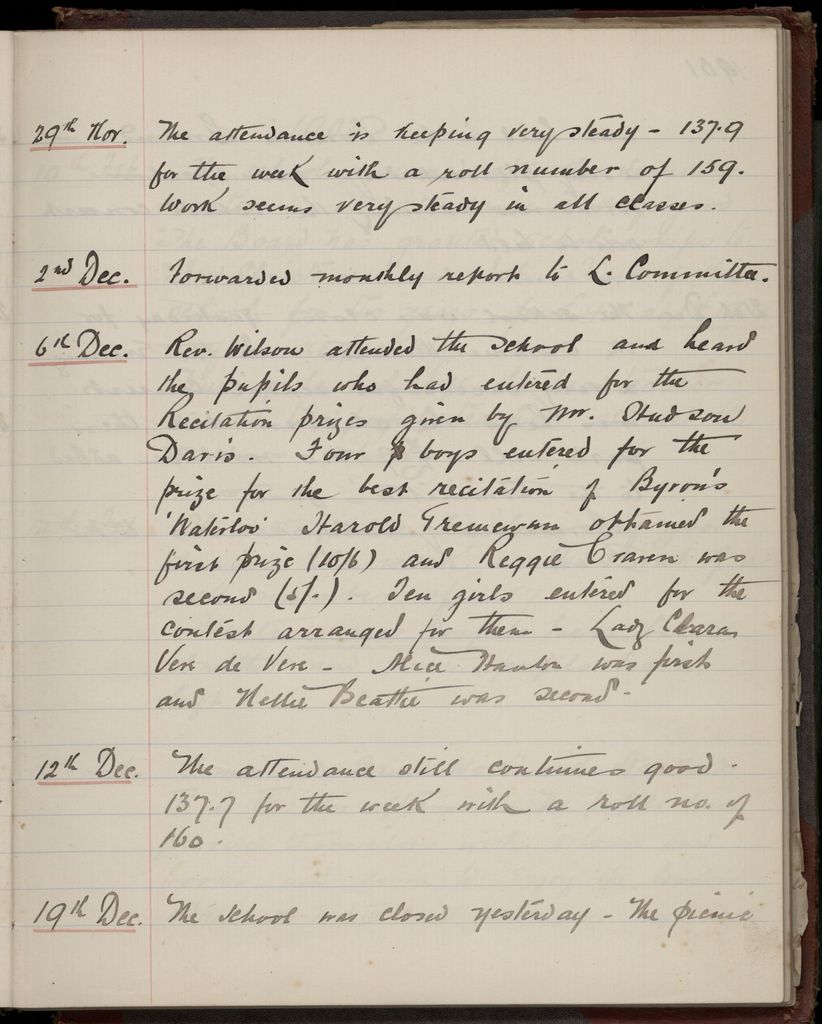 29th Nov. The attendance is keeping very steady - 137.9
for the week with a roll number of 159.
Work seems very steady in all classes.
2nd Dec. Forwarded monthly report to L. Committee.
6th Dec. Rev. Wilson attended the school and heard
the pupils who had entered for the
Recitation prizes given by Mr. Hudson
Davis. Four boys entered for the
prize for the best recitation of Byron's
'Waterloo' Harold Tremewan obtained the
first prize (10/6) and Reggie Craven was
second (5/-). Ten girls entered for the
contest arranged for them - Lady Clara
Vere de Vere - Alice Hanlon was first
and Nellie Beattie was second -
12th Dec. The attendance still continues good.
137.7 for the week with a roll no. of
160.
19th Dec. The school was closed yesterday - The picnic